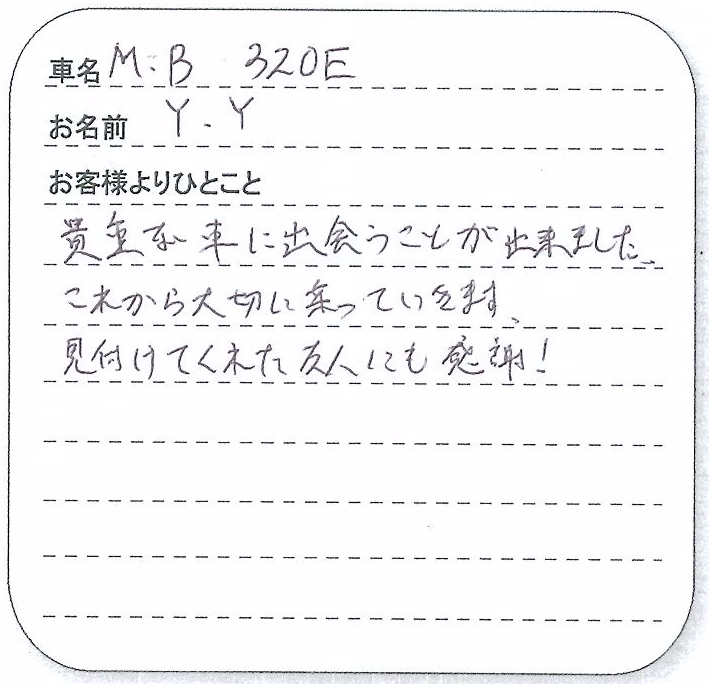 車名 M.B 320E
お名前 Y.Y
お客様よりひとこと
貴重な車に出会うことが出来ました、
これから大切に乗っていきます、
見付けてくれた友人にも感謝!